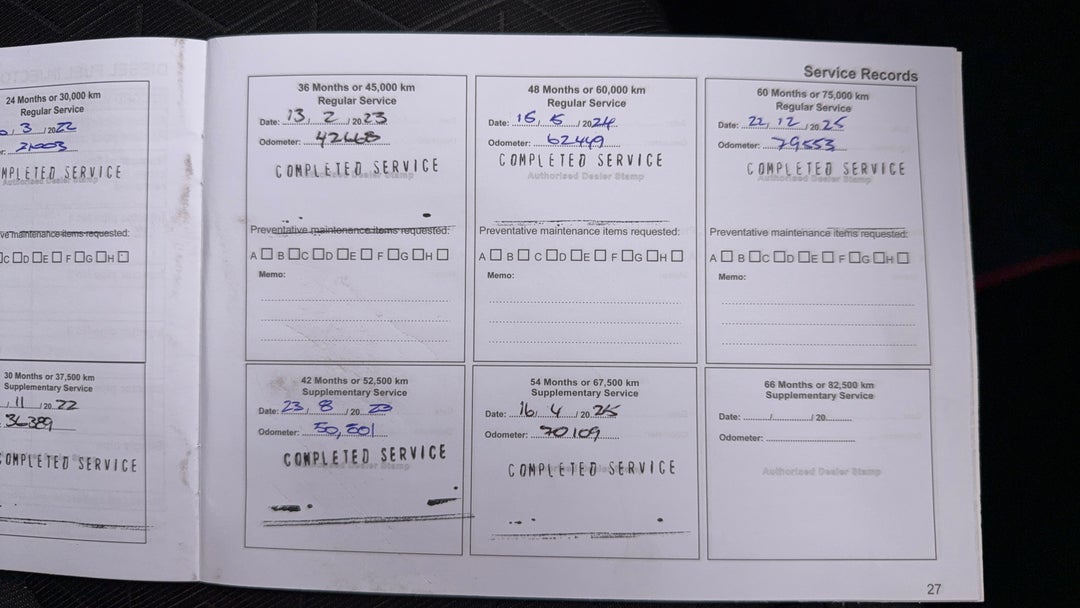 Service Records
24 Months or 30,000 km
Regular Service
3 / 2022
21003
MPLETED SERVICE
Authorised Dealer Stamp
ve maintenance items requested:
C D E F G H
30 Months or 37,500 km
Supplementary Service
/ 11 / 2022
36389
COMPLETED SERVICE
36 Months or 45,000 km
Regular Service
Date: 13, 2 / 2023
Odometer: 42668
COMPLETED SERVICE
Preventative maintenance items requested:
A B C D E F G H
Memo:
48 Months or 60,000 km
Regular Service
Date: 15, 5 / 2024
Odometer: 62449
COMPLETED SERVICE
Authorised Dealer Stamp
Preventative maintenance items requested:
A B C D E F G H
Memo:
60 Months or 75,000 km
Regular Service
Date: 22, 12 / 2025
Odometer: 79553
COMPLETED SERVICE
Authorised Dealer Stamp
Preventative maintenance items requested:
A B C D E F G H
Memo:
42 Months or 52,500 km
Supplementary Service
Date: 23, 8 / 2023
Odometer: 50,801
COMPLETED SERVICE
54 Months or 67,500 km
Supplementary Service
Date: 16, 4 / 2025
Odometer: 70109
COMPLETED SERVICE
66 Months or 82,500 km
Supplementary Service
Date: / / 20
Odometer:
Authorised Dealer Stamp
27